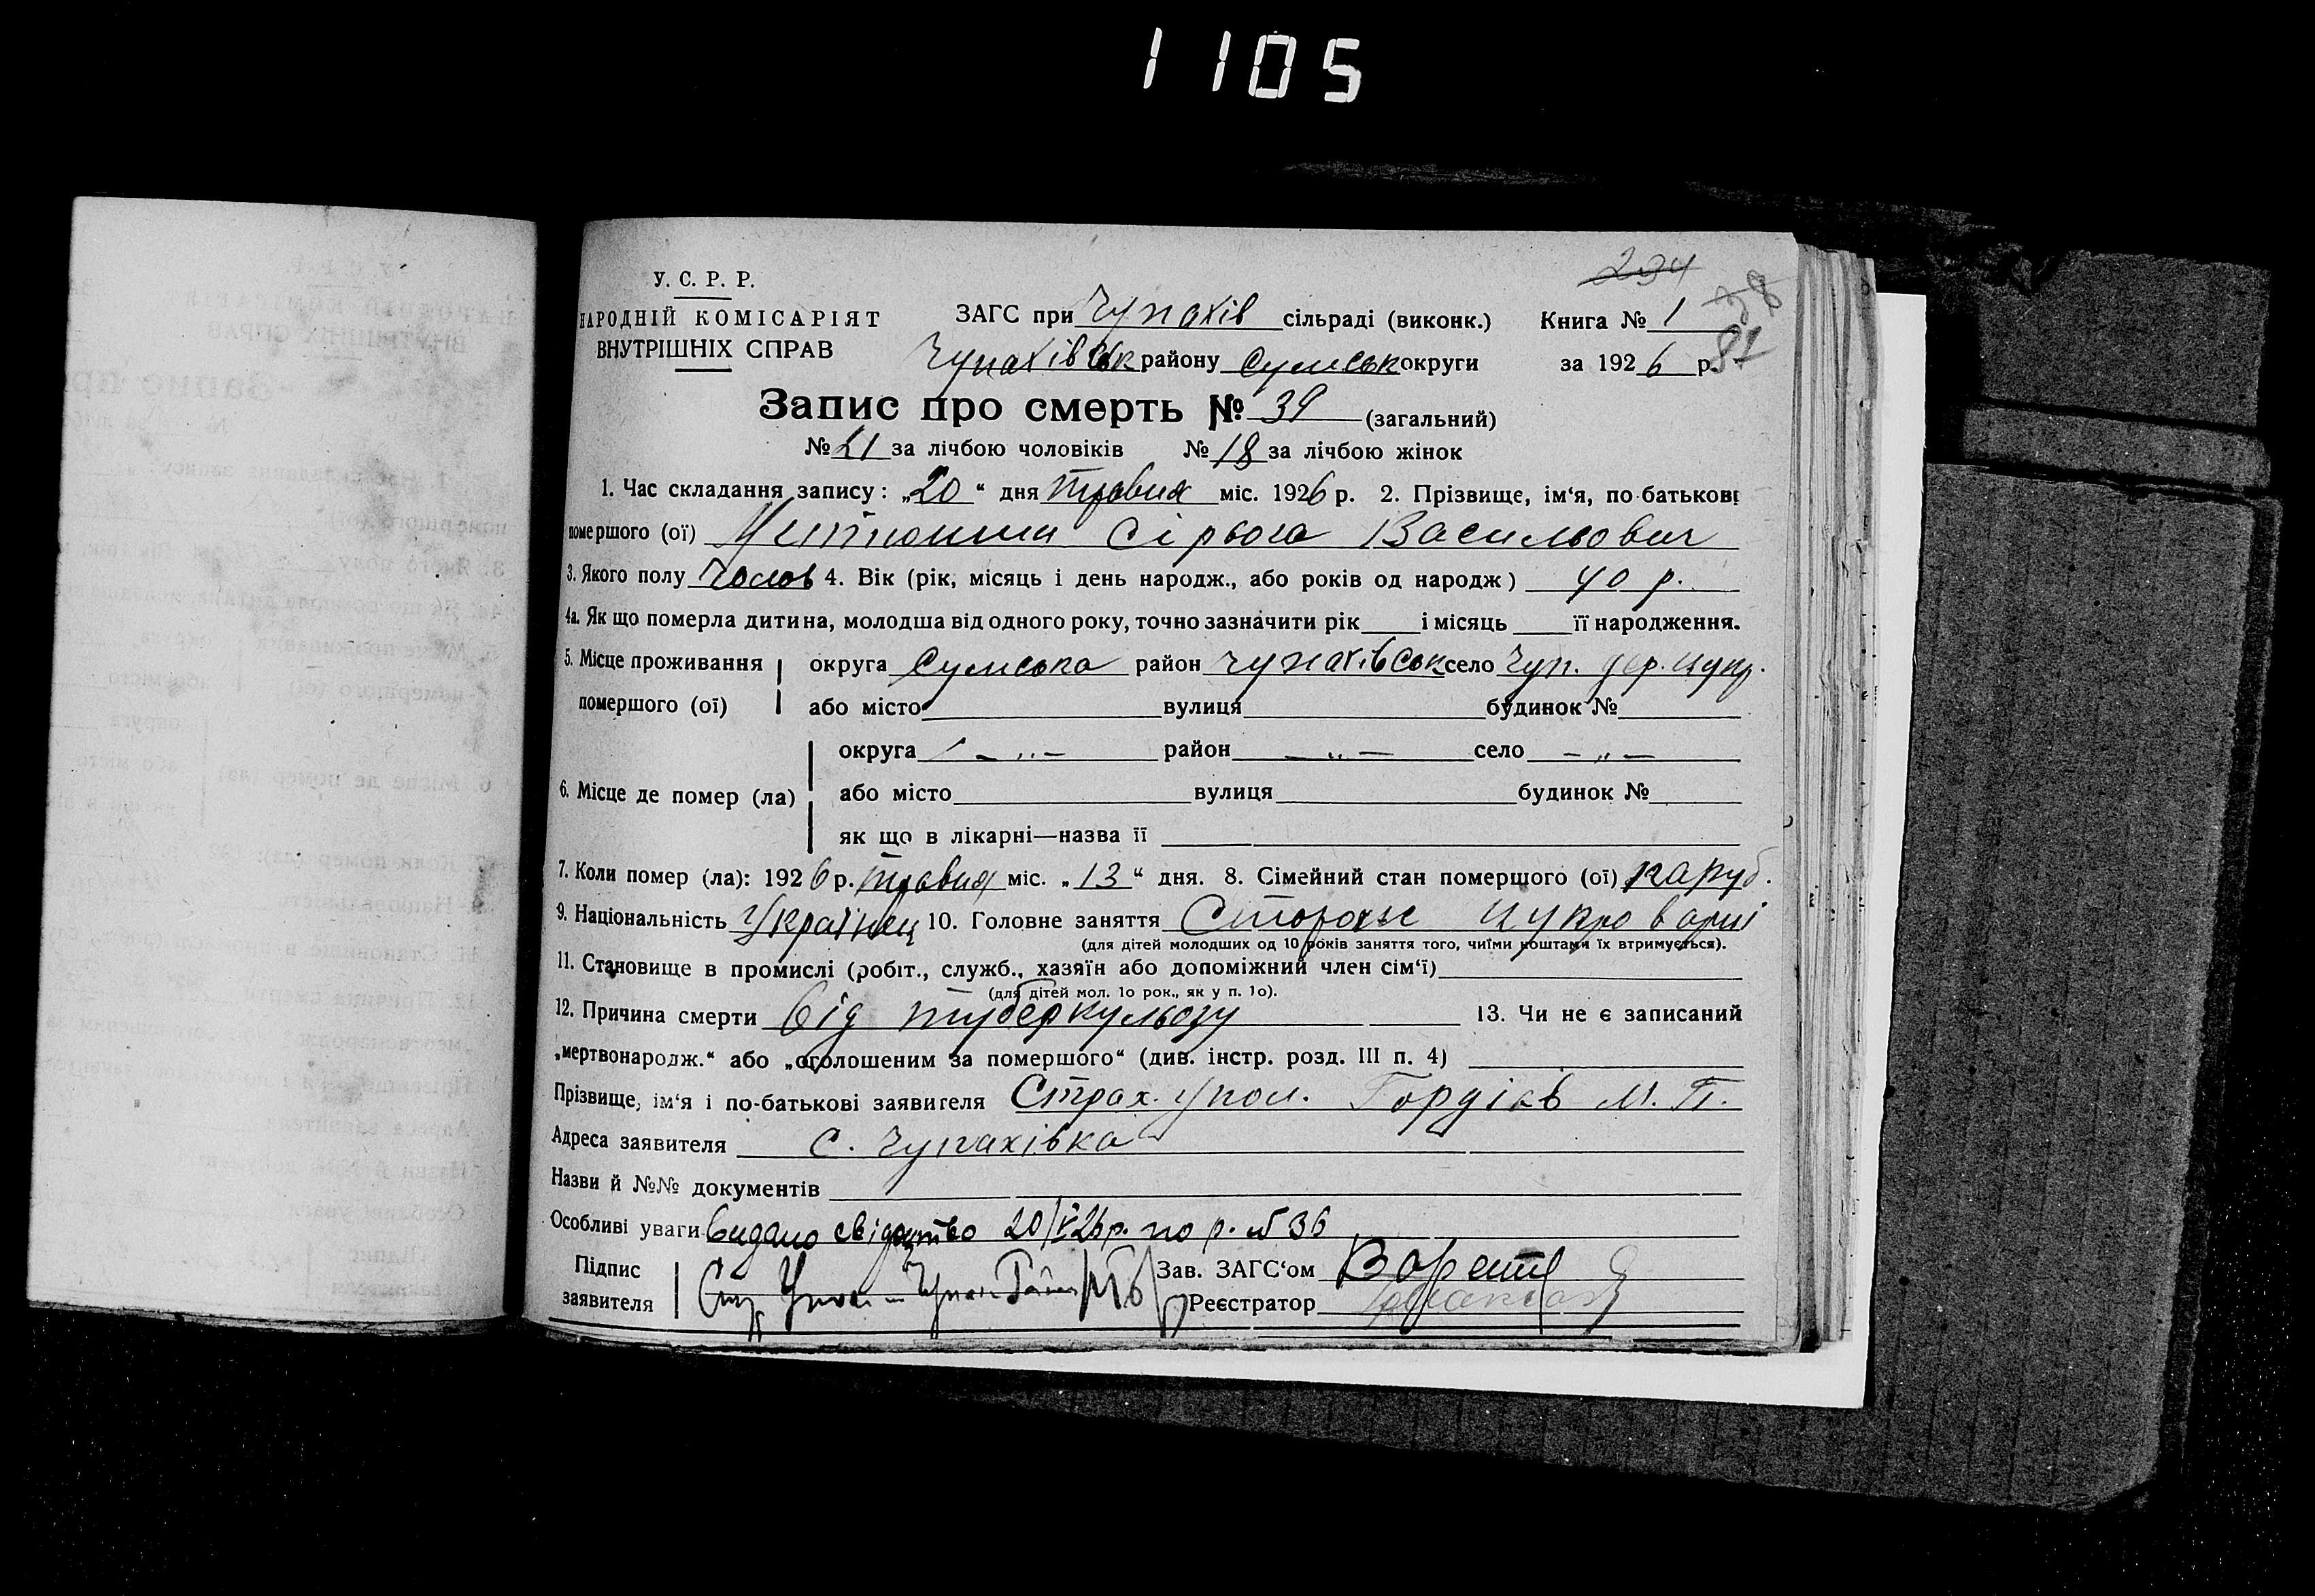 1105
234
38
82
У. С. Р. Р.
НАРОДНІЙ КОМІСАРІЯТ
ВНУТРІШНІХ СПРАВ
ЗАГС при Чупахів сільраді (виконк.) Книга № 1
Чупахівськ району Сумськ округи за 1926 р.
Запис про смерть № 39 (загальний)
№ 21 за лічбою чоловіків № 18 за лічбою жінок
1. Час складання запису: „20“ дня травня міс. 1926 р. 2. Прізвище, ім‘я, по-батькові
помершого (ої) Сірьога Васильович
3. Якого полу Чолов 4. Вік (рік, місяць і день народж., або років од народж) 40 р.
4а. Як що померла дитина, молодша від одного року, точно зазначити рік і місяць її народження.
5. Місце проживання помершого (ої) округа Сумська район Чупахівськ село Чуп. дер. цукр.
або місто вулиця будинок №
6. Місце де помер (ла) округа — „ — район — „ — село — „ —
або місто вулиця будинок №
як що в лікарні—назва її
7. Коли помер (ла): 1926 р. травня міс. „13“ дня. 8. Сімейний стан помершого (ої)
9. Національність Українец 10. Головне заняття Сторож цукроварні
(для дітей молодших од 10 років заняття того, чиїми коштами їх втримується).
11. Становище в промислі (робіт., служб., хазяїн або допоміжний член сім‘ї)
(для дітей мол. 10 рок., як у п. 10).
12. Причина смерти від туберкульозу 13. Чи не є записаний
„мертвонародж.“ або „оголошеним за помершого“ (див. інстр. розд. III п. 4)
Прізвище, ім‘я і по-батькові заявителя Страх. Упол. Гордієв М. П.
Адреса заявителя с. Чупахівка
Назви й №№ документів
Особливі уваги Видано свідоцтво 20/V 26 р. по р. № 36
Підпис заявителя
Зав. ЗАГС‘ом
Реєстратор